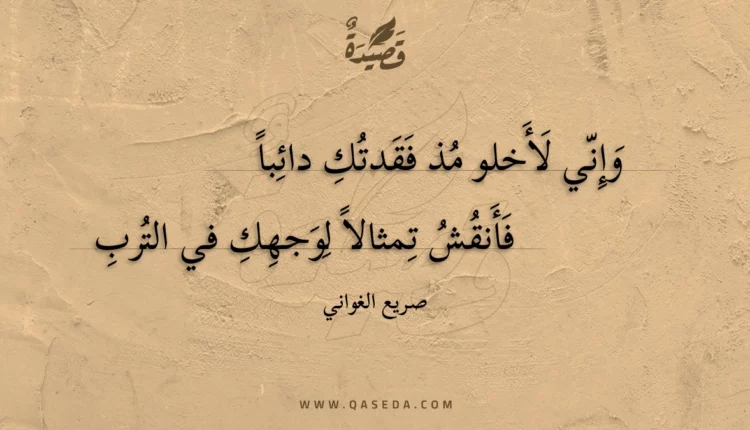 قَصِيْدَةٌ
وَإِنّي لَأَخلو مُذ فَقَدتُكِ دائِباً
فَأَنقُشُ تِمثالاً لِوَجهِكِ في التُربِ
صريع الغواني
WWW.QASEDA.COM